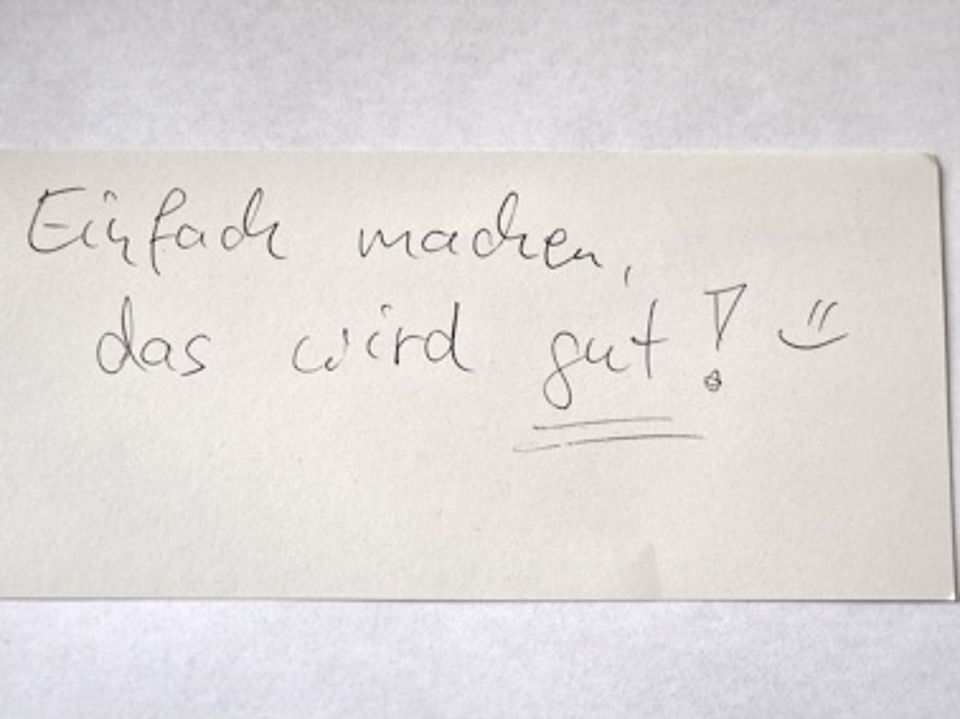 Einfach machen,
das wird gut! =)